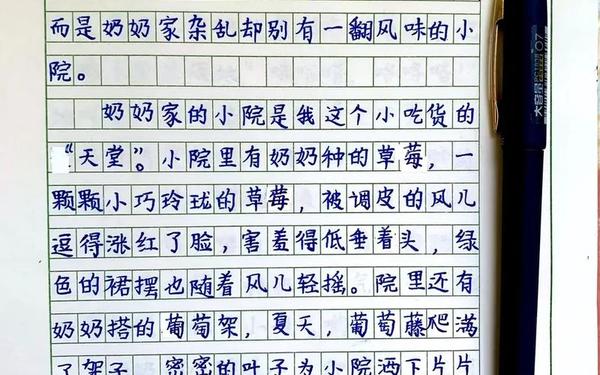 而是奶奶家杂乱却别有一翻风味的小
院。
奶奶家的小院是我这个小吃货的
“天堂”。小院里有奶奶种的草莓，一
颗颗小巧玲珑的草莓，被调皮的风儿
逗得涨红了脸，害羞得低垂着头，绿
色的裙摆也随着风儿轻摇。院里还有
奶奶搭的葡萄架，夏天，葡萄藤爬满
了架子，密密的叶子为小院洒下片片
大容量 0.7